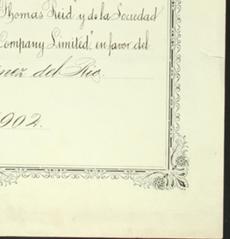 Thomas Reid" y de la Sociedad
Company Limited", en favor del
nez del Rio
1902.